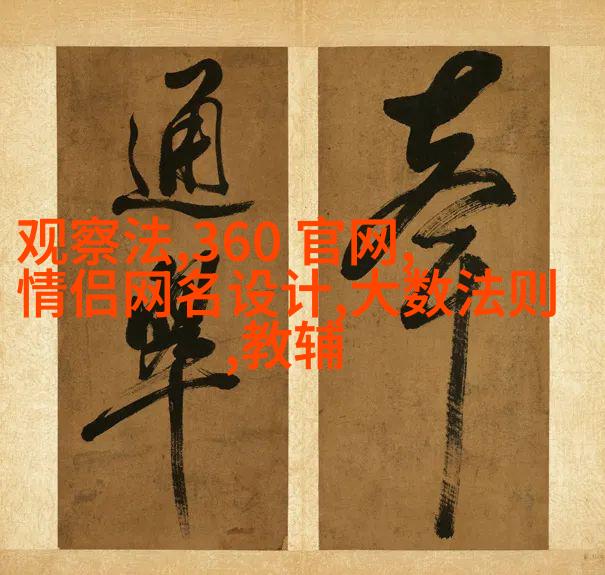 观察法,360 官网,
情侣网名设计,大数法则
,教辅
奉
通